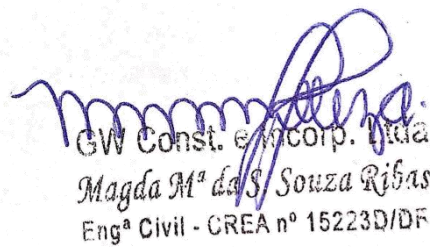 GW Const. e Incorp. Ltda
Magda Mª da S. Souza Ribas
Engª Civil - CREA nº 15223D/DF